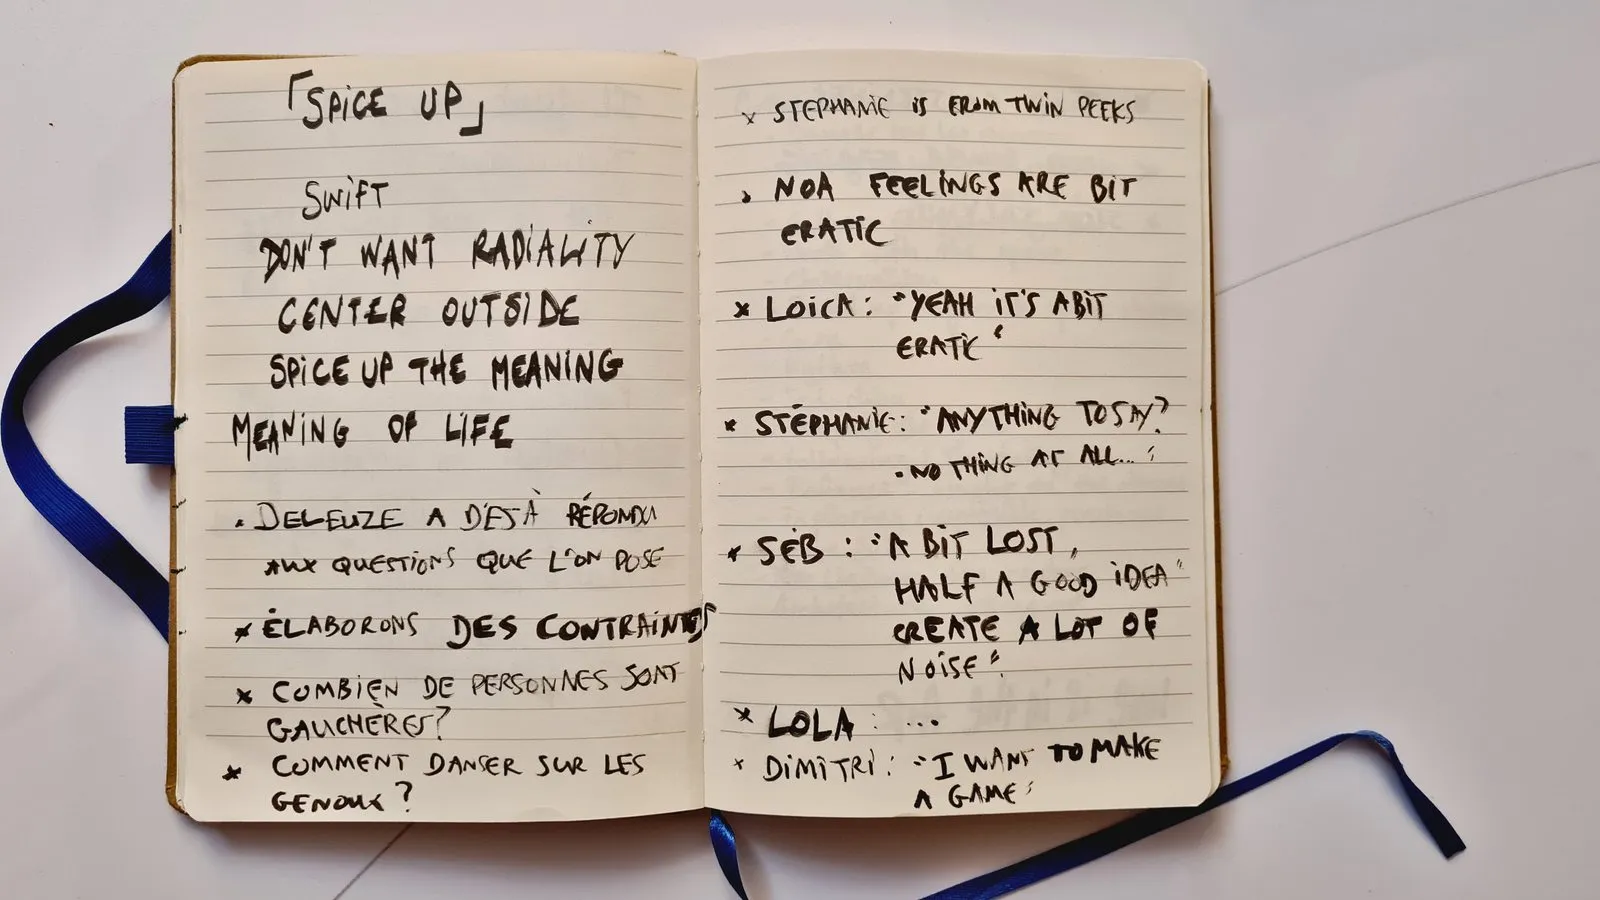 「SPICE UP」
SWIFT
DON'T WANT RADIALITY
CENTER OUTSIDE
SPICE UP THE MEANING
MEANING OF LIFE
. DELEUZE A DÉSJÀ RÉPONDU
AUX QUESTIONS QUE L'ON POSE
* ÉLABORONS DES CONTRAINTES
* COMBIEN DE PERSONNES SONT
GAUCHÈRES?
* COMMENT DANSER SUR LES
GENOUX ?
x STEPHANIE IS FROM TWIN PEEKS
. NOA FEELINGS ARE BIT
ERATIC
* LOICA : "YEAH IT'S A BIT
ERATIC"
* STÉPHANIE : "ANYTHING TO SAY?
- NOTHING AT ALL..."
* SÉB : "A BIT LOST,
HALF A GOOD IDEA"
CREATE A LOT OF
NOISE"
* LOLA : ...
* DIMITRI : "I WANT TO MAKE
A GAME"